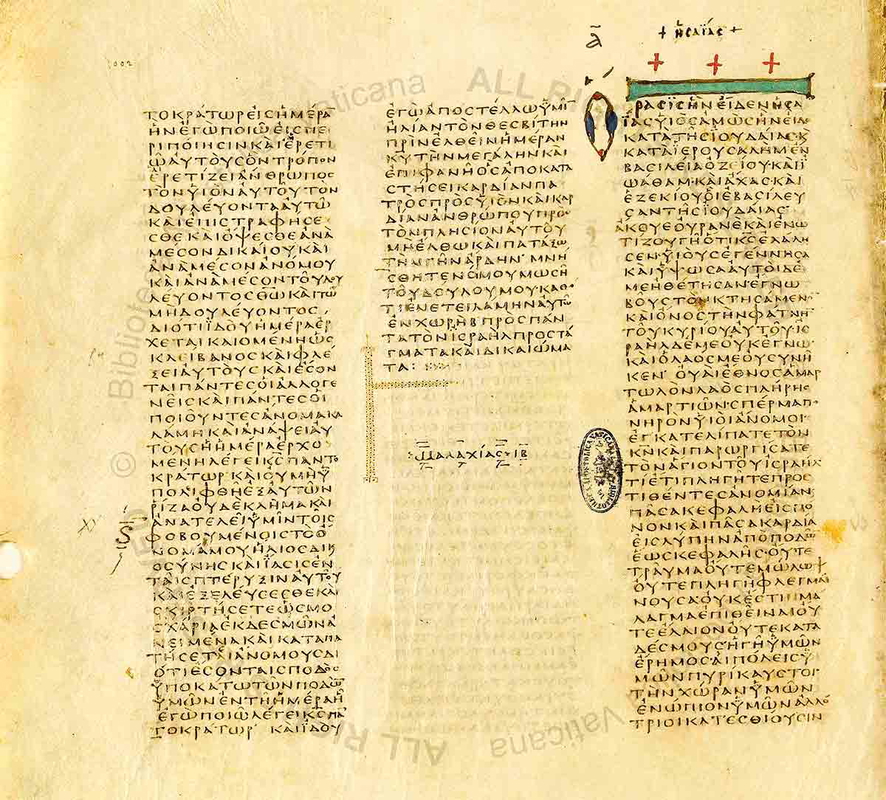 ΤΟΚΡΑΤΩΡΕΙϹΗΜΕΡΑ
ΗΝΕΓΩΠΟΙΩΕΙϹΠΕ
ΡΙΠΟΙΗϹΙΝΚΑΙΕΡΕΤΙ
ΩΑΥΤΟΥϹΟΝΤΡΟΠΟΝ
ΕΡΕΤΙΖΕΙΑΝΘΡΩΠΟϹ
ΤΟΝΥΙΟΝΑΥΤΟΥΤΟΝ
ΔΟΥΛΕΥΟΝΤΑΑΥΤΩ
ΚΑΙΕΠΙϹΤΡΑΦΗϹΕ
ϹΘΕΚΑΙΟΨΕϹΘΕΑΝΑ
ΜΕϹΟΝΔΙΚΑΙΟΥΚΑΙ
ΑΝΑΜΕϹΟΝΑΝΟΜΟΥ
ΚΑΙΑΝΑΜΕϹΟΝΤΟΥΔΟΥ
ΛΕΥΟΝΤΟϹΘΩΚΑΙΤΟΥ
ΜΗΔΟΥΛΕΥΟΝΤΟϹ
ΔΙΟΤΙΙΔΟΥΗΜΕΡΑΕΡ
ΧΕΤΑΙΚΑΙΟΜΕΝΗΩϹ
ΚΛΕΙΒΑΝΟϹΚΑΙΦΛΕ
ΞΕΙΑΥΤΟΥϹΚΑΙΕϹΟΝ
ΤΑΙΠΑΝΤΕϹΟΙΑΛΛΟΓΕ
ΝΕΙϹΚΑΙΠΑΝΤΕϹΟΙ
ΠΟΙΟΥΝΤΕϹΑΝΟΜΑΚΑ
ΛΑΜΗΚΑΙΑΝΑΨΕΙΑΥ
ΤΟΥϹΗΗΜΕΡΑΕΡΧΟ
ΜΕΝΗΛΕΓΕΙΚϹΠΑΝΤΟ
ΚΡΑΤΩΡΚΑΙΟΥΜΗΥ
ΠΟΛΙΦΘΗΕΞΑΥΤΩΝ
ΡΙΖΑΟΥΔΕΚΛΗΜΑΚΑΙ
ΑΝΑΤΕΛΕΙΥΜΙΝΤΟΙϹ
ΦΟΒΟΥΜΕΝΟΙϹΤΟΟ
ΝΟΜΑΜΟΥΗΛΙΟϹΔΙΚΑΙ
ΟϹΥΝΗϹΚΑΙΙΑϹΙϹΕΝ
ΤΑΙϹΠΤΕΡΥΞΙΝΑΥΤΟΥ
ΚΑΙΕΞΕΛΕΥϹΕϹΘΕΚΑΙ
ϹΚΙΡΤΗϹΕΤΕΩϹΜΟ
ϹΧΑΡΙΑΕΚΔΕϹΜΩΝΑ
ΝΕΙΜΕΝΑΚΑΙΚΑΤΑΠΑ
ΤΗϹΕΤΑΙΑΝΟΜΟΥϹΔΙ
ΟΤΙΕϹΟΝΤΑΙϹΠΟΔΟϹ
ΥΠΟΚΑΤΩΤΩΝΠΟΔΩΝ
ΥΜΩΝΕΝΤΗΗΜΕΡΑΗ
ΕΓΩΠΟΙΩΛΕΓΕΙΚϹΠΑΝ
ΤΟΚΡΑΤΩΡ ΚΑΙΙΔΟΥ
ΕΓΩΑΠΟϹΤΕΛΛΩΥΜΙΝ
ΗΛΙΑΝΤΟΝΘΕϹΒΙΤΗΝ
ΠΡΙΝΕΛΘΕΙΝΗΜΕΡΑΝ
ΚΥΤΗΝΜΕΓΑΛΗΝΚΑΙ
ΕΠΙΦΑΝΗΟϹΑΠΟΚΑΤΑ
ϹΤΗϹΕΙΚΑΡΔΙΑΝΠΑ
ΤΡΟϹΠΡΟϹΥΙΟΝΚΑΙΚΑΡ
ΔΙΑΝΑΝΘΡΩΠΟΥΠΡΟϹ
ΤΟΝΠΛΗϹΙΟΝΑΥΤΟΥ
ΜΗΕΛΘΩΚΑΙΠΑΤΑΞΩ
ΤΗΝΓΗΝΑΡΔΗΝ ΜΝΗ
ϹΘΗΤΕΝΟΜΟΥΜΩϹΗ
ΤΟΥΔΟΥΛΟΥΜΟΥΚΑΘΟ
ΤΙΕΝΕΤΕΙΛΑΜΗΝΑΥΤΩ
ΕΝΧΩΡΗΒΠΡΟϹΠΑΝ
ΤΑΤΟΝΙϹΡΑΗΛΠΡΟϹΤΑ
ΓΜΑΤΑΚΑΙΔΙΚΑΙΩΜΑ
ΤΑ:
ΜΑΛΑΧΙΑϹ ΙΒ
+ ΗϹΑΙΑϹ +
ΟΡΑϹΙϹΗΝΕΙΔΕΝΗϹΑ
ΙΑϹΥΙΟϹΑΜΩϹΗΝΕΙΔΕ
ΚΑΤΑΤΗϹΙΟΥΔΑΙΑϹΚ
ΚΑΤΑΙΕΡΟΥϹΑΛΗΜΕΝ
ΒΑϹΙΛΕΙΑΟΖΕΙΟΥΚΑΙΙ
ΩΑΘΑΜΚΑΙΑΧΑϹΚΑΙ
ΕΖΕΚΙΟΥΟΙΕΒΑϹΙΛΕΥ
ϹΑΝΤΗϹΙΟΥΔΑΙΑϹ
ΑΚΟΥΕΟΥΡΑΝΕΚΑΙΕΝΩ
ΤΙΖΟΥΓΗΟΤΙΚϹΕΛΑΛΗ
ϹΕΝΥΙΟΥϹΕΓΕΝΝΗϹΑ
ΚΑΙΥΨΩϹΑΑΥΤΟΙΔΕ
ΜΕΗΘΕΤΗϹΑΝΕΓΝΩ
ΒΟΥϹΤΟΝΚΤΗϹΑΜΕΝΟΝ
ΚΑΙΟΝΟϹΤΗΝΦΑΤΝΗΝ
ΤΟΥΚΥΡΙΟΥΑΥΤΟΥΙϹ
ΡΑΗΛΔΕΜΕΟΥΚΕΓΝΩ
ΚΑΙΟΛΑΟϹΜΕΟΥϹΥΝΗ
ΚΕΝ ΟΥΑΙΕΘΝΟϹΑΜΑΡ
ΤΩΛΟΝΛΑΟϹΠΛΗΡΗϹ
ΑΜΑΡΤΙΩΝϹΠΕΡΜΑΠΟ
ΝΗΡΟΝΥΙΟΙΑΝΟΜΟΙ
ΕΓΚΑΤΕΛΙΠΑΤΕΤΟΝ
ΚΝΚΑΙΠΑΡΩΡΓΙϹΑΤΕ
ΤΟΝΑΓΙΟΝΤΟΥΙϹΡΑΗΛ
ΤΙΕΤΙΠΛΗΓΗΤΕΠΡΟϹ
ΤΙΘΕΝΤΕϹΑΝΟΜΙΑΝ
ΠΑϹΑΚΕΦΑΛΗΕΙϹΠΟ
ΝΟΝΚΑΙΠΑϹΑΚΑΡΔΙΑ
ΕΙϹΛΥΠΗΝΑΠΟΠΟΔΩΝ
ΕΩϹΚΕΦΑΛΗϹΟΥΤΕ
ΤΡΑΥΜΑΟΥΤΕΜΩΛΩΨ
ΟΥΤΕΠΛΗΓΗΦΛΕΓΜΑΙ
ΝΟΥϹΑΟΥΚΕϹΤΙΝΜΑ
ΛΑΓΜΑΕΠΙΘΕΙΝΑΙΟΥ
ΤΕΕΛΑΙΟΝΟΥΤΕΚΑΤΑ
ΔΕϹΜΟΥϹΗΓΗΥΜΩΝ
ΕΡΗΜΟϹΑΙΠΟΛΕΙϹΥ
ΜΩΝΠΥΡΙΚΑΥϹΤΟΙ
ΤΗΝΧΩΡΑΝΥΜΩΝ
ΕΝΩΠΙΟΝΥΜΩΝΑΛΛΟ
ΤΡΙΟΙΚΑΤΕϹΘΙΟΥϹΙΝ